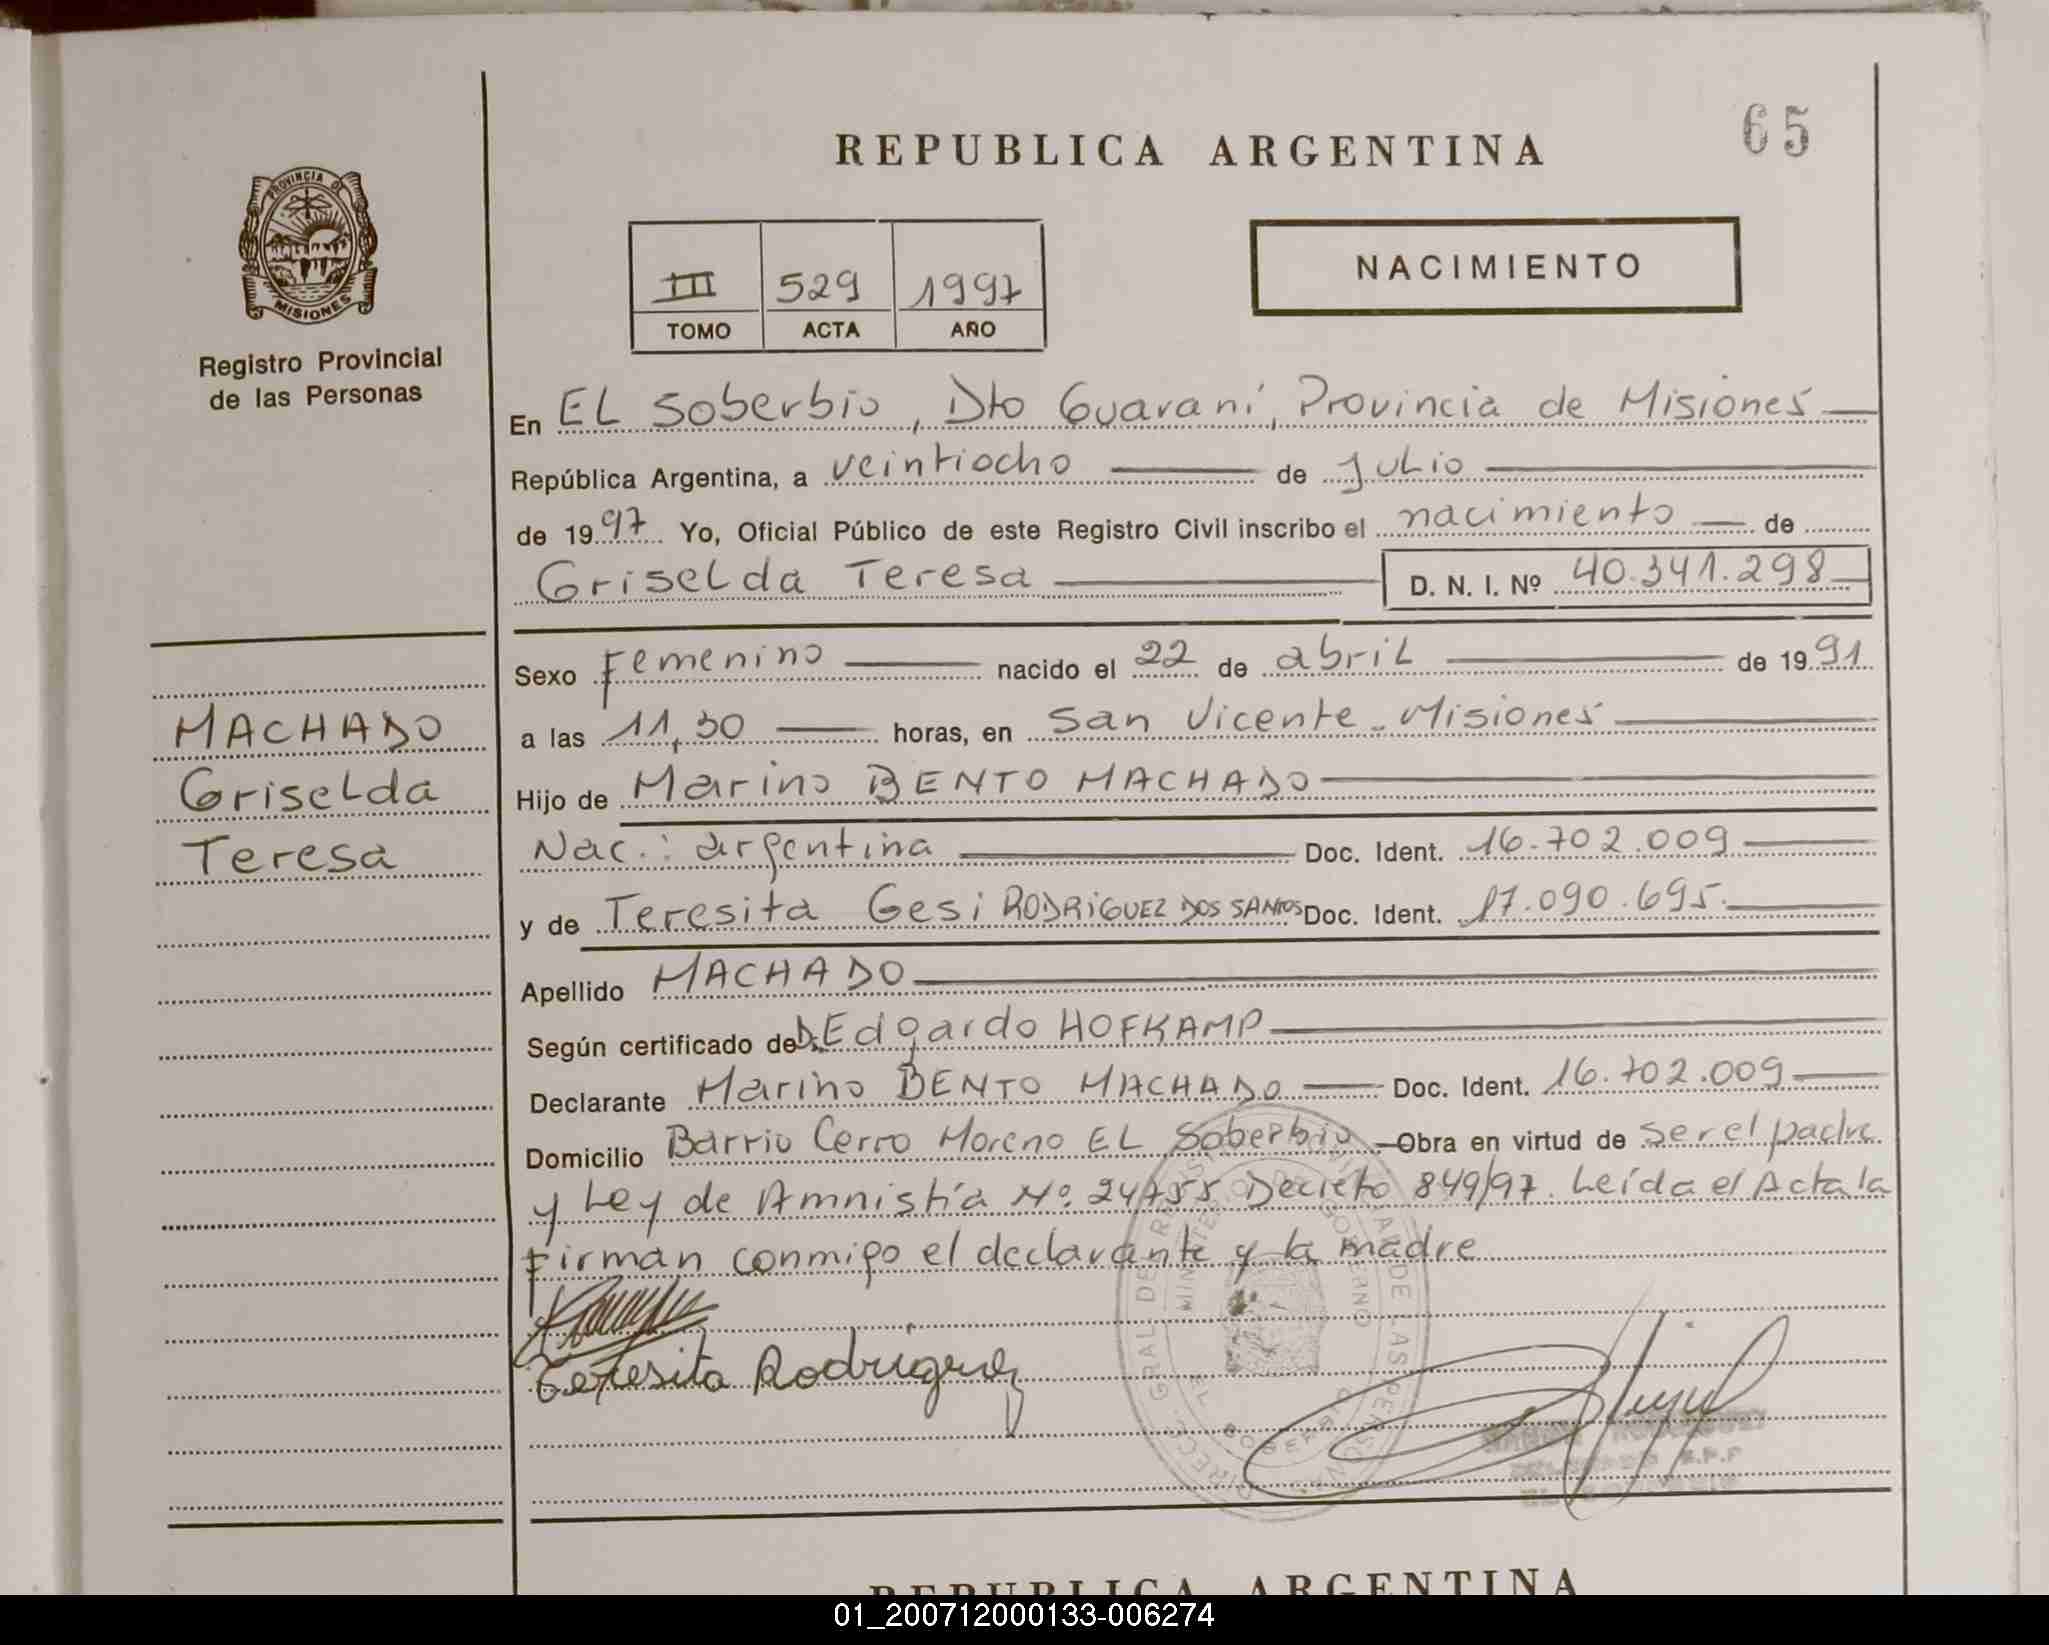 65
REPUBLICA ARGENTINA
PROVINCIA DE
MISIONES
Registro Provincial
de las Personas
III 529 1997
TOMO ACTA AÑO
NACIMIENTO
En EL Soberbio, Dto Guaraní, Provincia de Misiones
República Argentina, a veintiocho de Julio
de 1997 Yo, Oficial Público de este Registro Civil inscribo el nacimiento de
Griselda Teresa D. N. I. Nº 40.341.298
Sexo Femenino nacido el 22 de abril de 1991
a las 11,30 horas, en San Vicente - Misiones
MACHADO
Griselda
Teresa
Hijo de Marino BENTO MACHADO
Nac.: argentina Doc. Ident. 16.702.009
y de Teresita Gesi RODRiGUEZ DOS SANTOS Doc. Ident. 17.090.695
Apellido MACHADO
Según certificado de Dr. Edgardo HOFKAMP
Declarante Marino BENTO MACHADO Doc. Ident. 16.702.009
Domicilio Barrio Cerro Moreno EL Soberbio Obra en virtud de ser el padre
y Ley de Amnistía Nº 24755 Decreto 849/97. Leída el Acta la
Firman conmigo el declarante y la madre
Teresita Rodriguez
REPUBLICA ARGENTINA
01_200712000133-006274